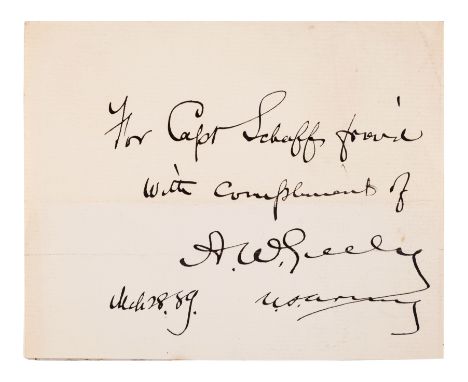 For Capt Schaff's friend
with compliment of
A. W. Greely
Mch 28. 89. U.S. Army